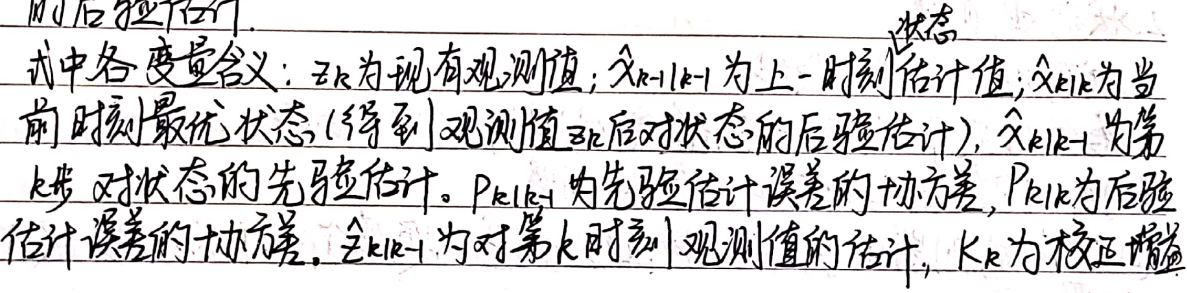 的后验估计.
式中各变量含义：z_k为现有观测值；x̂_{k-1|k-1}为上一时刻状态估计值；x̂_{k|k}为当
前时刻最优状态(得到观测值z_k后对状态的后验估计)，x̂_{k|k-1}为第
k步对状态的先验估计。P_{k|k-1}为先验估计误差的协方差，P_{k|k}为后验
估计误差的协方差。ẑ_{k|k-1}为对第k时刻观测值的估计，K_k为校正增益